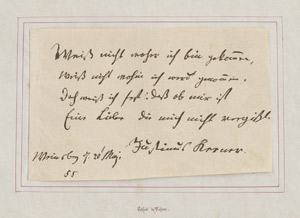 Weiß nicht woher ich bin gekommen,
Weiß nicht wohin ich werd genommen,
Doch weiß ich fest: daß ob mir ist
Eine Liebe die mich nicht vergißt.
Weinsberg 28 Mai
55
Justinus Kerner.